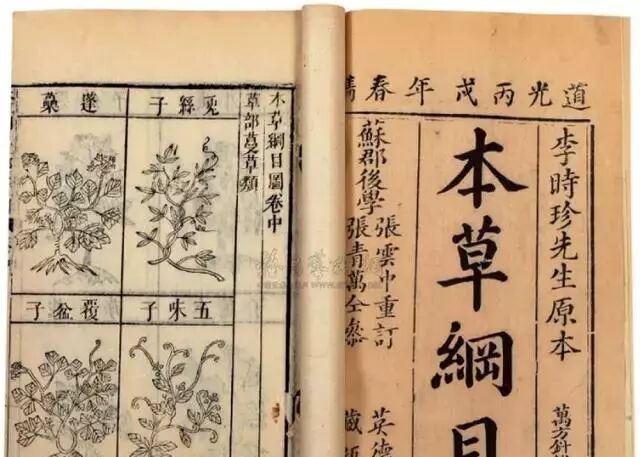 道光丙戌年春
李時珍先生原本
萬方針
本草綱目
蘇郡後學
張雲中重訂
張青萬仝參
英德
藏
本草綱目圖卷中
草部蔓草類
兎絲子
蓬蘽
五味子
覆盆子